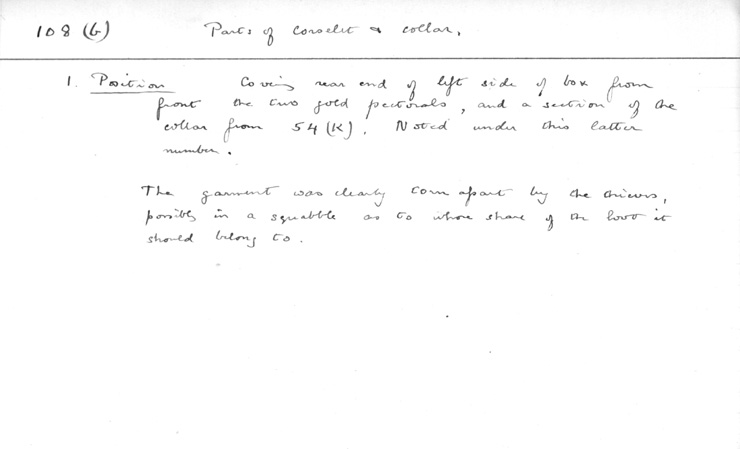 108 (b) Parts of corselet & collar.
1. Position Covering rear end of left side of box from
front the two gold pectorals, and a section of the
collar from 54 (k). Noted under this latter
number.
The garment was clearly torn apart by the thieves,
possibly in a squabble as to whose share of the loot it
should belong to.